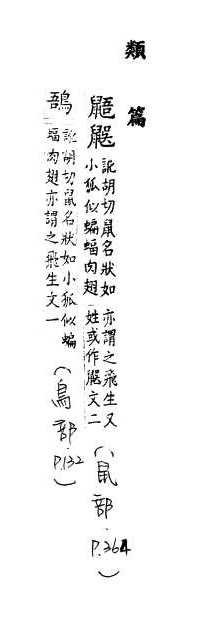 類篇
鼯
訛胡切鼠名狀如
小狐似蝙蝠肉翅
亦謂之飛生又
姓或作文二
(鼠部.P.364)
訛胡切鼠名狀如小狐似蝙
蝠肉翅亦謂之飛生文一
(鳥部.P.132)